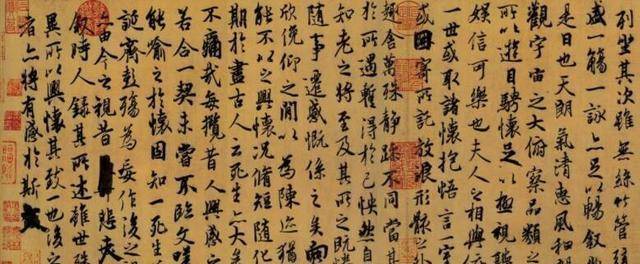 列坐其次雖無絲竹管弦
盛一觴一詠亦足以暢敘
是日也天朗氣清惠風和暢
觀宇宙之大俯察品類之
所以遊目騁懷足以極視聽
娛信可樂也夫人之相與
一世或取諸懷抱悟言一室
或因寄所託放浪形骸之外
趣舍萬殊靜躁不同當其
於所遇蹔得於己怏然自
知老之將至及其所之既惓
隨事遷感慨係之矣向
欣俛仰之閒以為陳迹猶
能不以之興懷況脩短隨化
期於盡古人云死生亦大矣
不痛哉每攬昔人興感之
若合一契未嘗不臨文嗟
能喻之於懷固知一死生
誕齊彭殤為妄作後之
亦由今之視昔悲夫
敘時人錄其所述雖世殊
異所以興懷其致一也後之
者亦將有感於斯